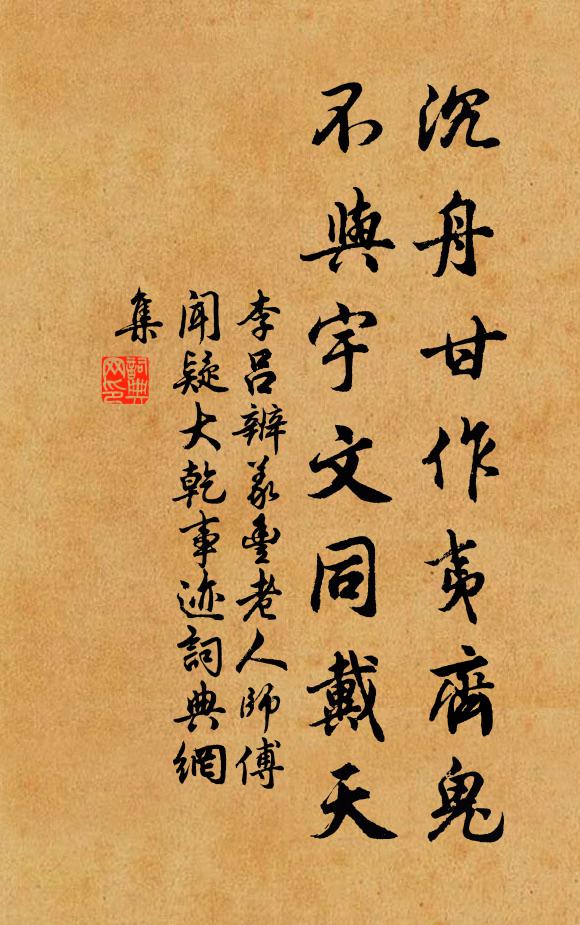 沉舟甘作夷齊鬼
不與宇文同戴天
李呂辨義豐老人師傅
聞疑大乾事迹詞典網
集
詞典網印